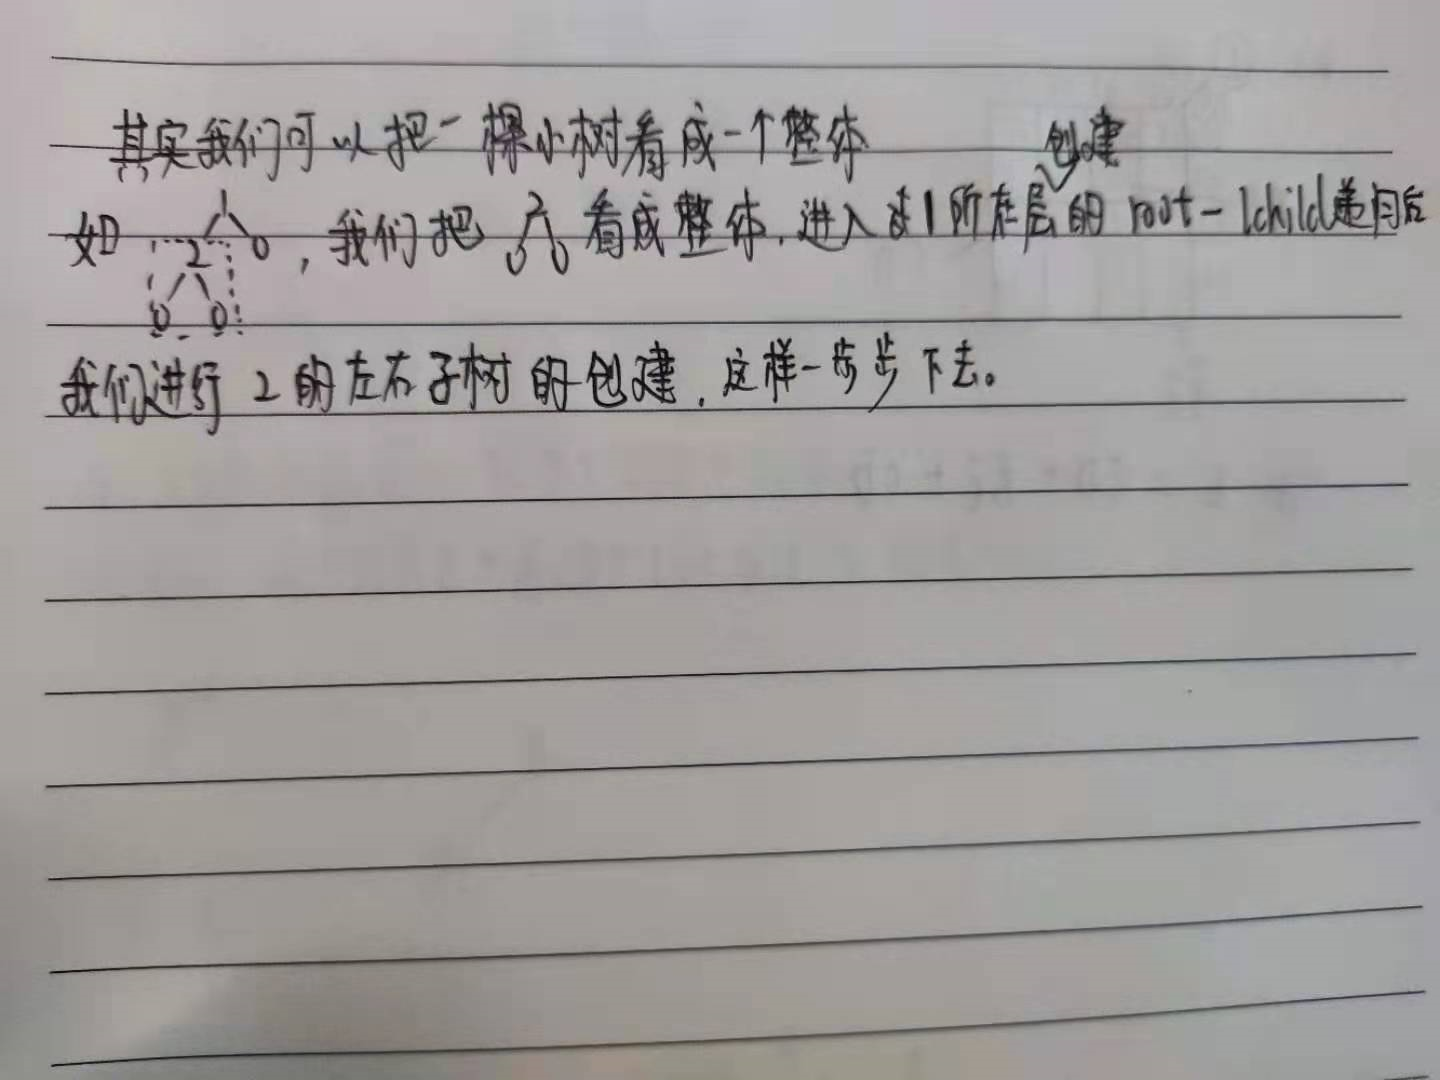 其实我们可以把一棵小树看成一个整体
创建
如 1 2 0 0 0 , 我们把 2 0 0 看成整体, 进入过1所在层的 root-lchild递归后
我们进行 2 的左右子树的创建, 这样一步步下去。